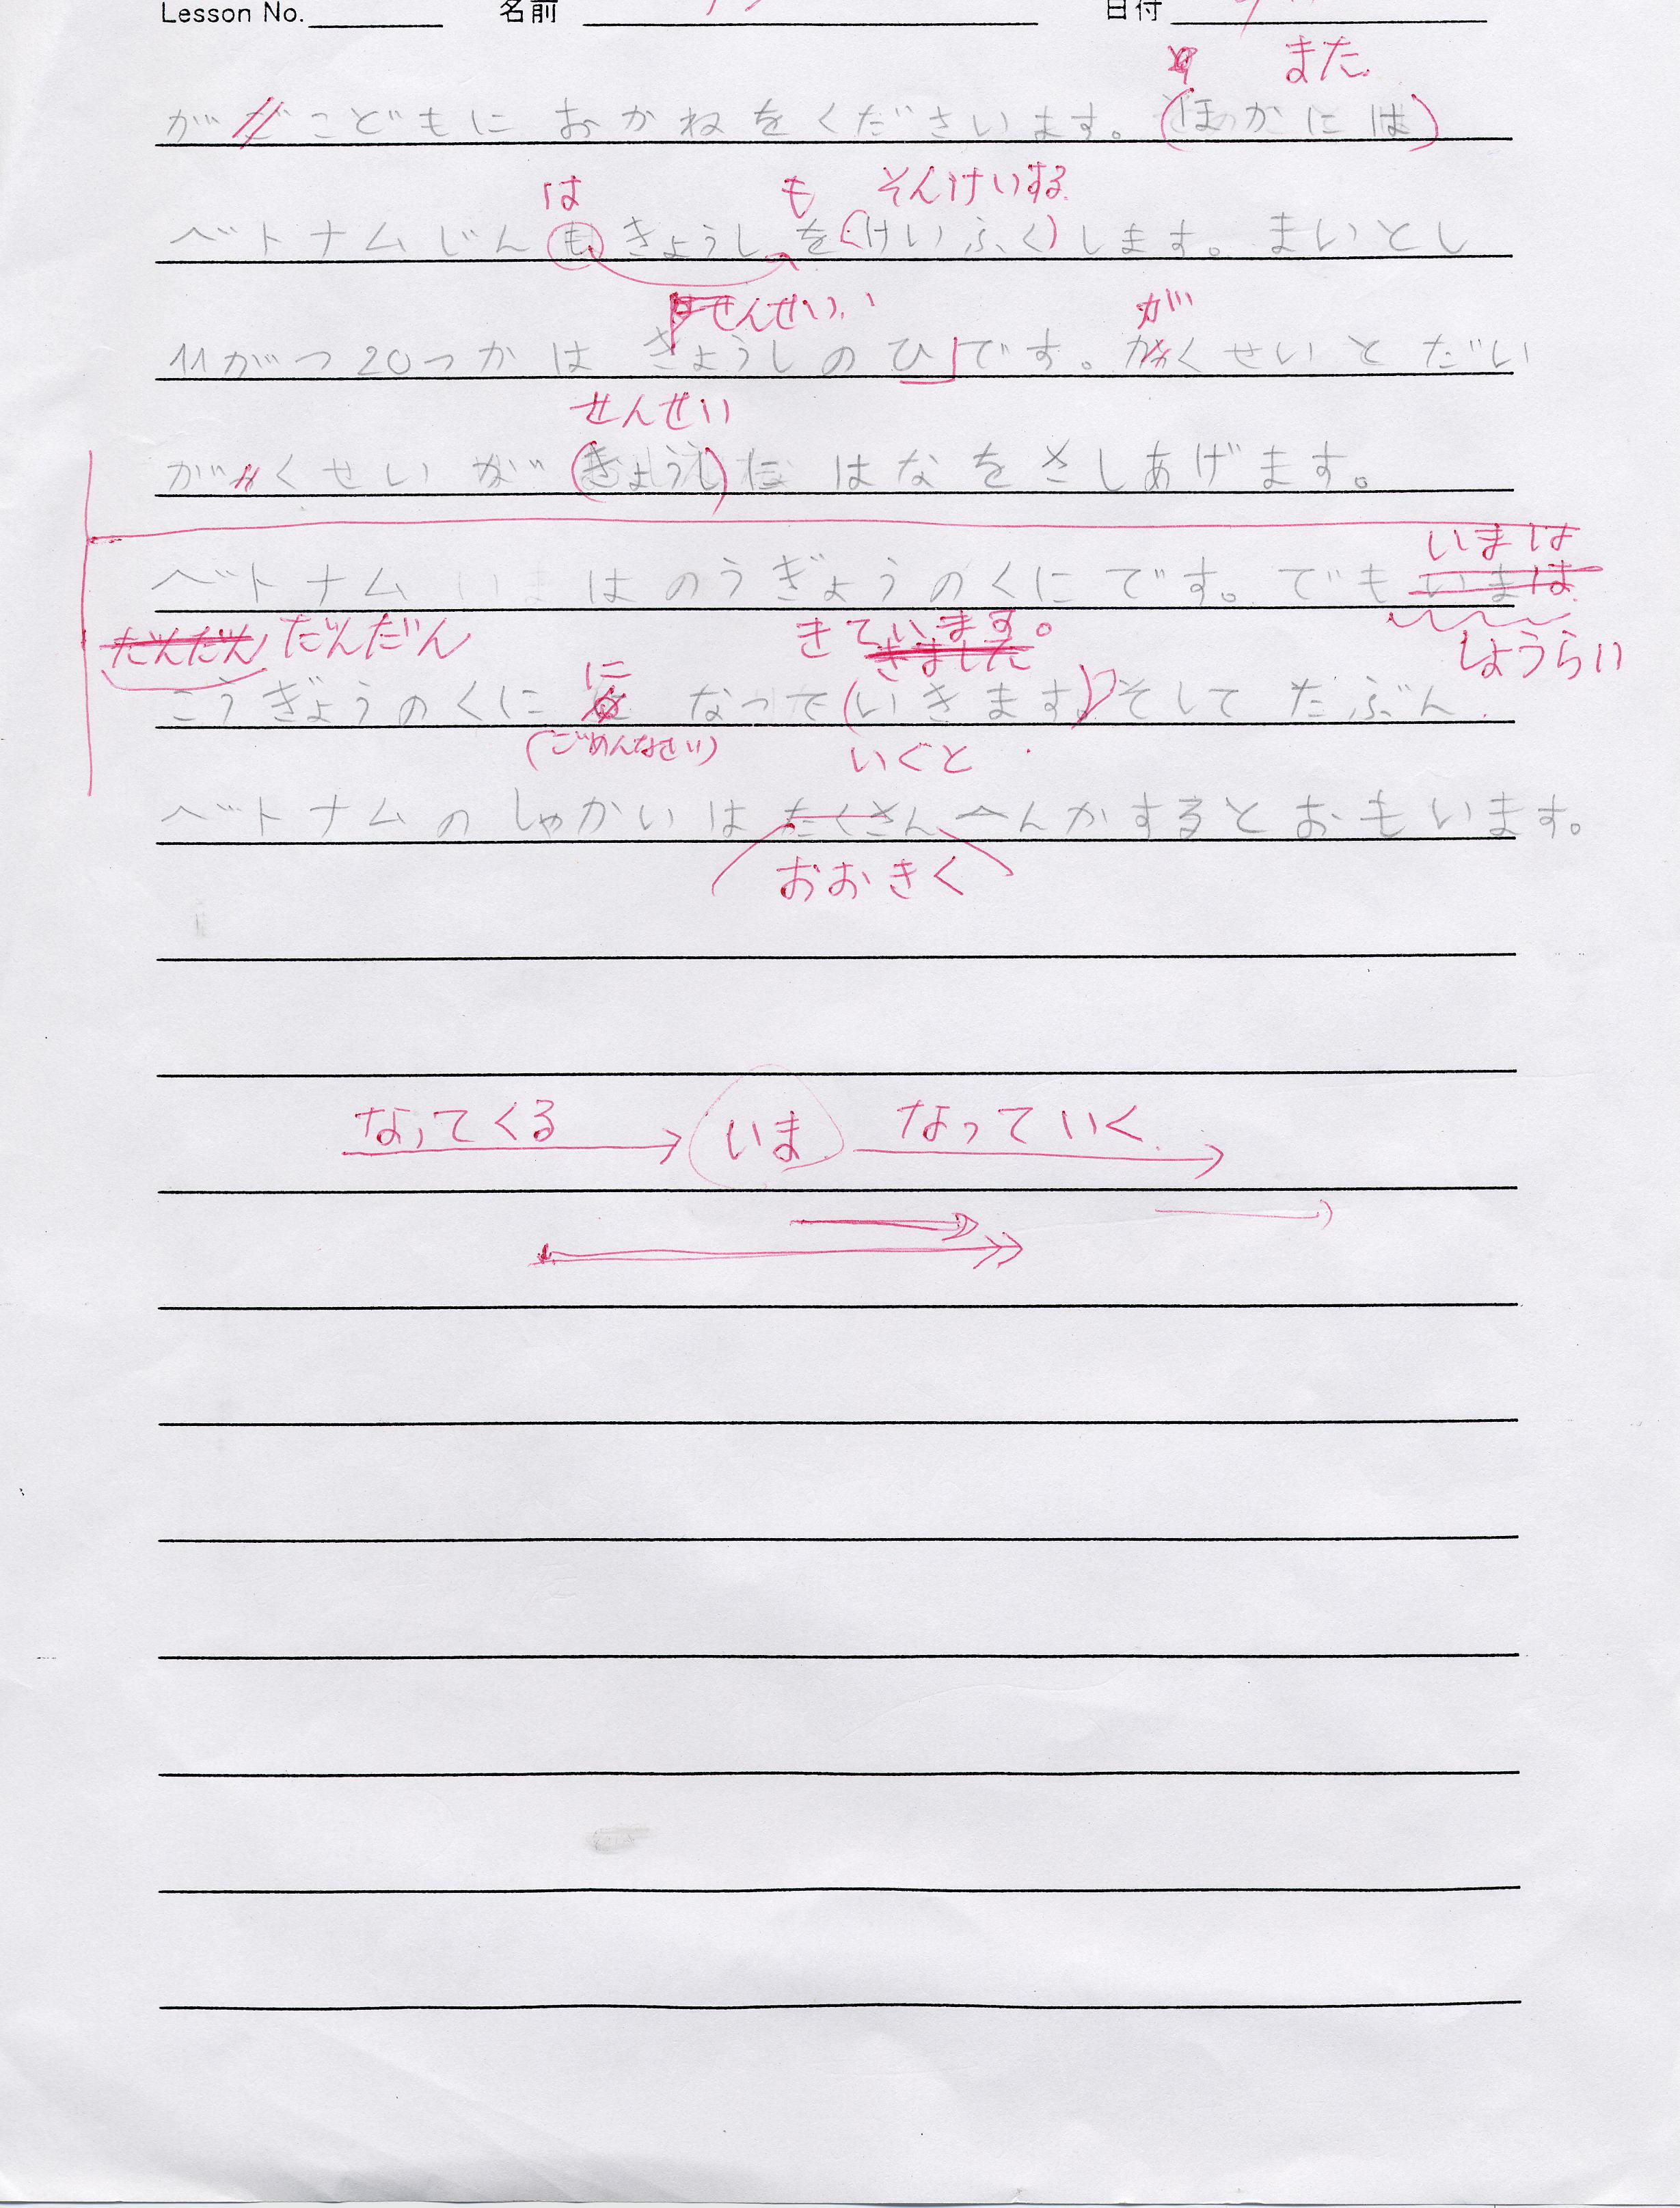 Lesson No. 名前 日付
また
が こどもに おかねをくださいます。(ほかには)
は も そんけいする
ベトナムじん も きょうし を (けいふく) します。まいとし
せんせい が
11がつ 20つか は きょうしの ひ」です。がくせいと だい
せんせい
がくせい が (きょうし) に はなを さしあげます。
いまは
ベトナム は のうぎょうの くに です。でも いまは
だんだん だんだん きています。 きました しょうらい
に
こうぎょうの くに なって (いきます) そして たぶん
(ごめんなさい) いくと
ベトナムの しゃかい は たくさん へんかすると おもいます。
おおきく
なってくる いま なっていく